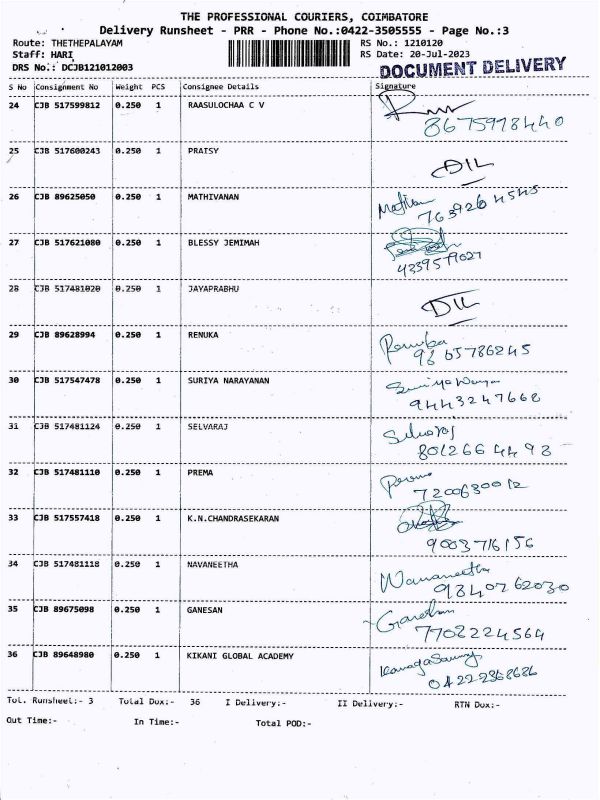 THE PROFESSIONAL COURIERS, COIMBATORE
Delivery Runsheet - PRR - Phone No.:0422-3505555 - Page No.:3
Route: THETHEPALAYAM RS No.: 1210120
Staff: HARI RS Date: 20-Jul-2023
DRS No.: DCJB121012003 DOCUMENT DELIVERY
S No Consignment No Weight PCS Consignee Details Signature
24 CJB 517599812 0.250 1 RAASULOCHAA C V
8675978440
25 CJB 517600243 0.250 1 PRAISY
DIL
26 CJB 89625050 0.250 1 MATHIVANAN
7639264545
27 CJB 517621080 0.250 1 BLESSY JEMIMAH
28 CJB 517481020 0.250 1 JAYAPRABHU
DIL
29 CJB 89628994 0.250 1 RENUKA Renuka
9865786245
30 CJB 517547478 0.250 1 SURIYA NARAYANAN
9443247668
31 CJB 517481124 0.250 1 SELVARAJ Selvaraj
8012664498
32 CJB 517481110 0.250 1 PREMA
7200630012
33 CJB 517557418 0.250 1 K.N.CHANDRASEKARAN
9003716156
34 CJB 517481118 0.250 1 NAVANEETHA Navaneetha
9840762030
35 CJB 89675098 0.250 1 GANESAN Ganesan
7702224564
36 CJB 89648980 0.250 1 KIKANI GLOBAL ACADEMY
04222368686
Tot. Runsheet:- 3 Total Dox:- 36 I Delivery:- II Delivery:- RTN Dox:-
Out Time:- In Time:- Total POD:-